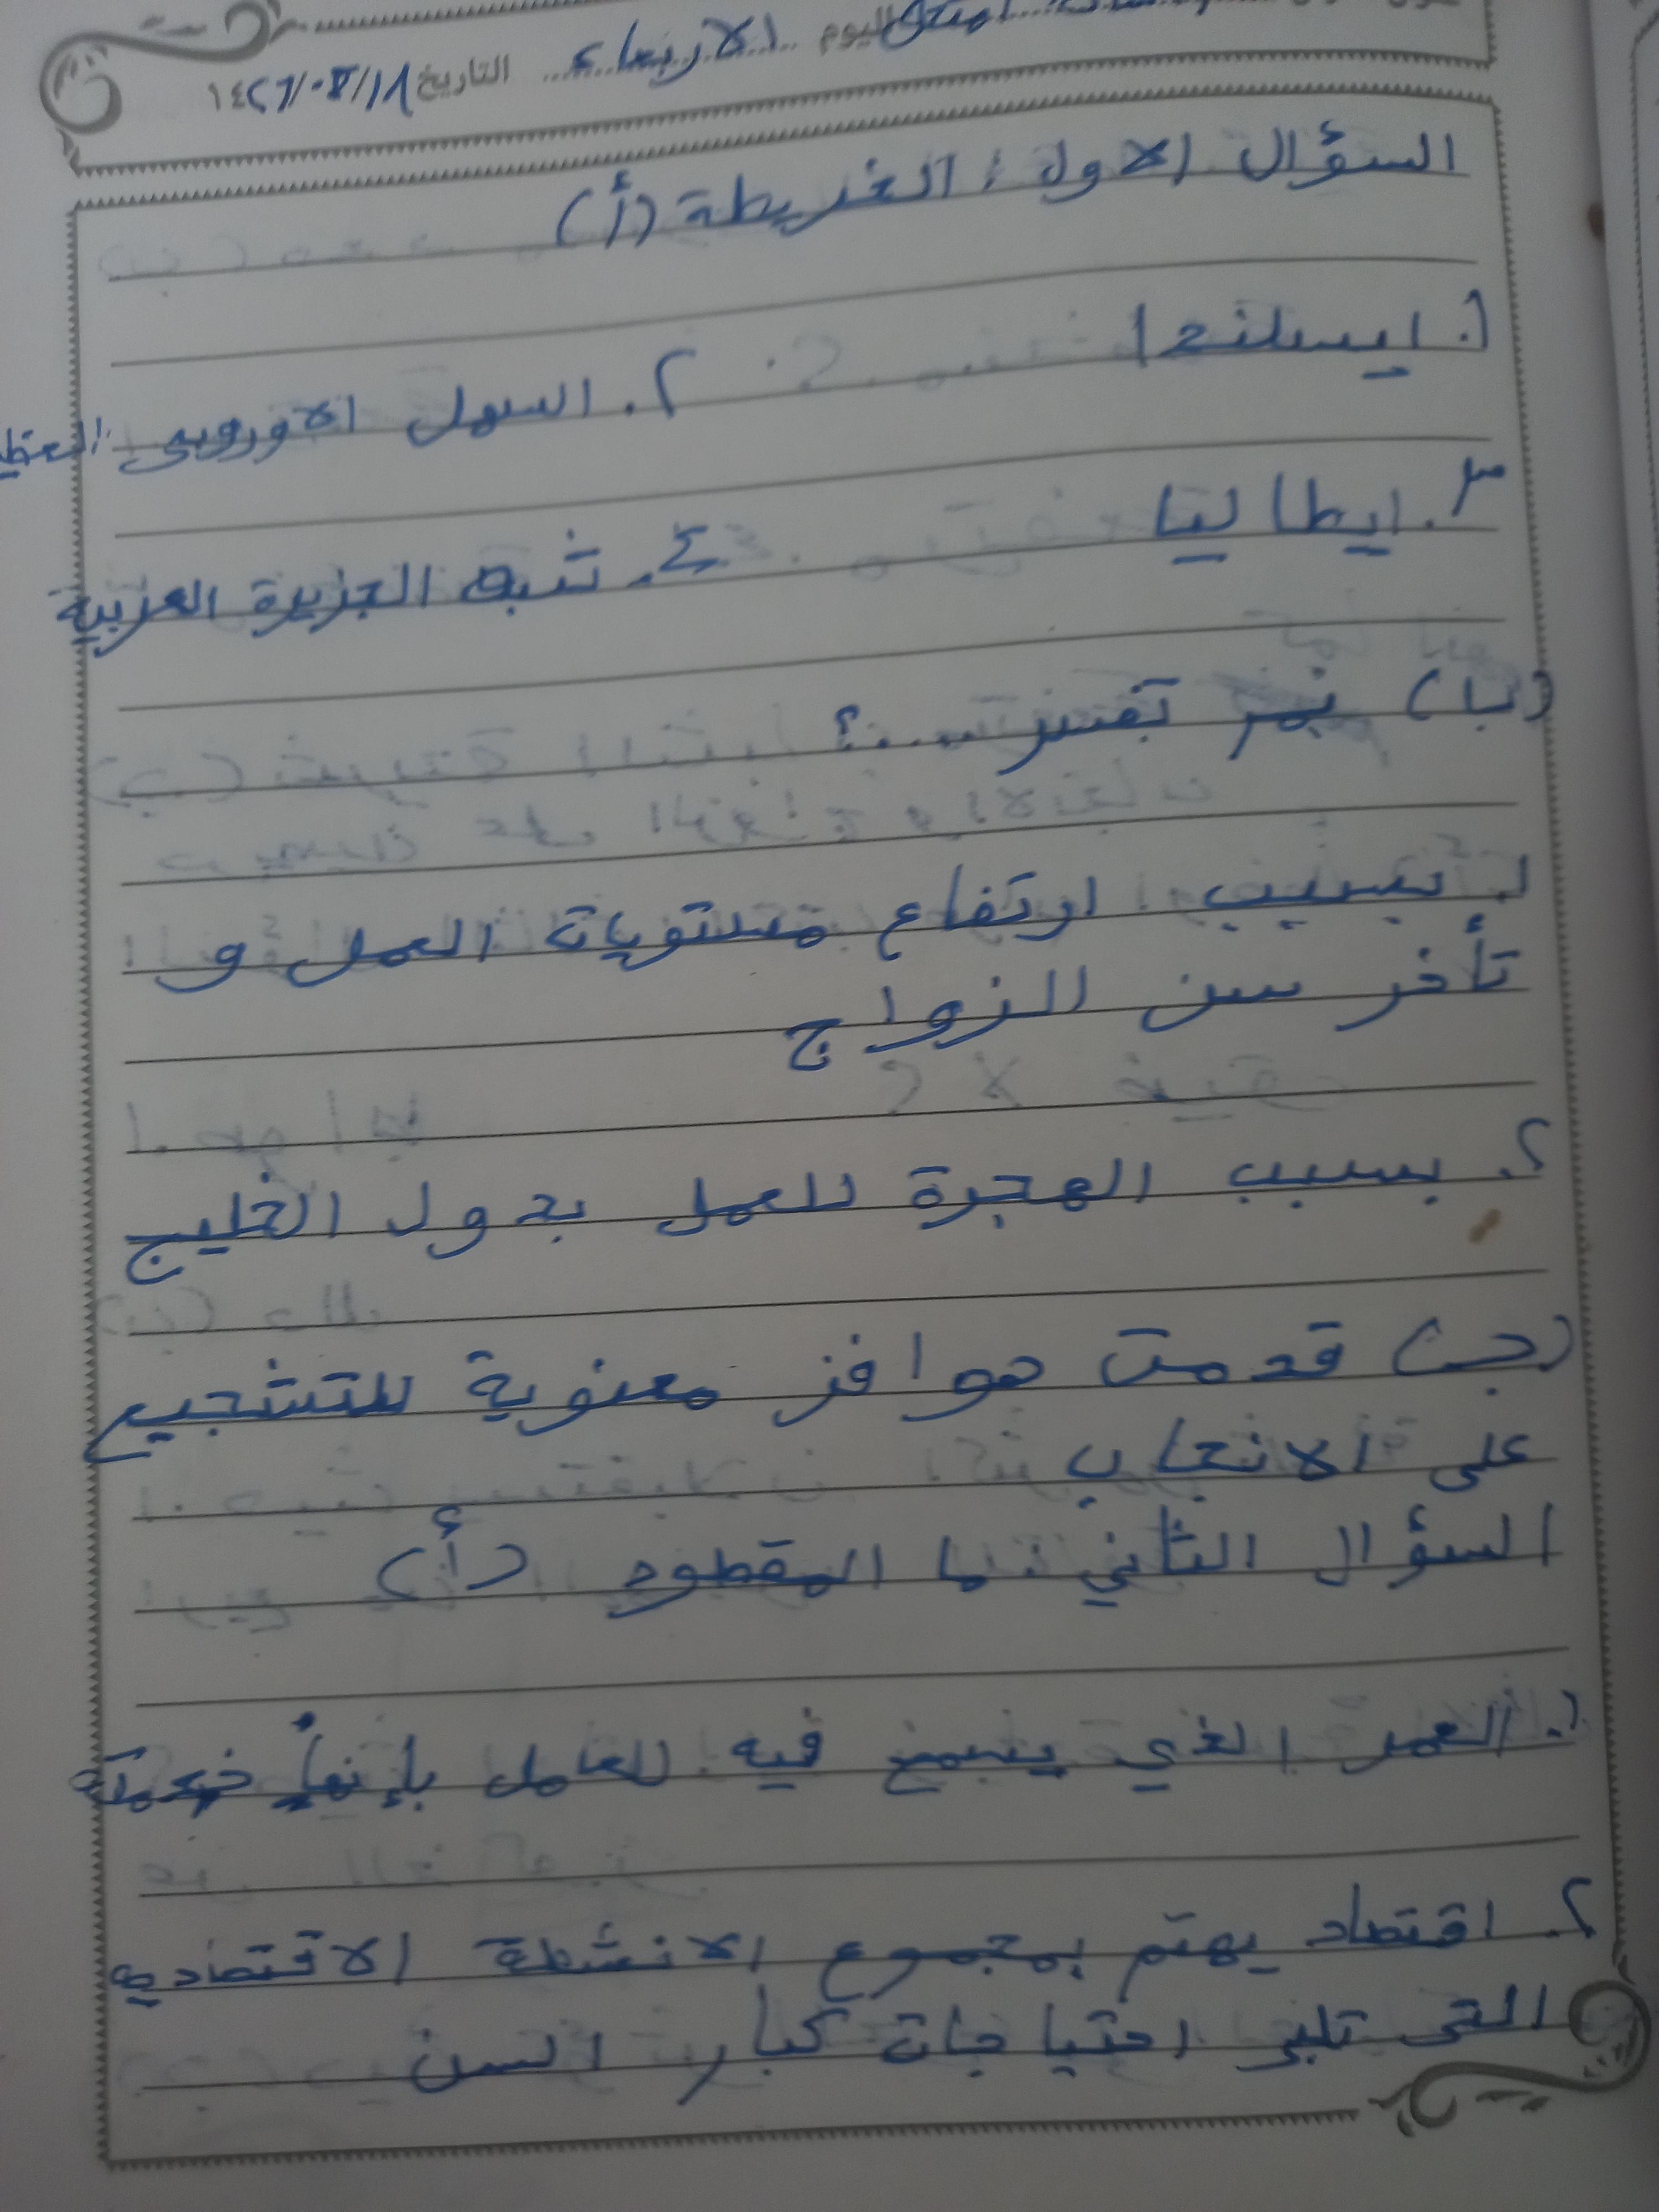 اليوم الاربعاء التاريخ ١٤٤٦/٠٨/١٨
السؤال الاول : الخريطة (أ)
١. ايسلندا
٢. السهل الاوروبي العظ
٣. ايطاليا
٤. شبه الجزيرة العربية
(ب) بم تفسر .....؟
١. بسبب ارتفاع مستويات العمل و
تأخر سن الزواج
٢. بسبب الهجرة للعمل بدول الخليج
(جـ) قدمت حوافز معنوية للتشجيع
على الانجاب
السؤال الثاني : ما المقصود (أ)
١. العمر الذي يسمح فيه للعامل بإنهاء خدمته
٢. اقتصاد يهتم بمجموع الانشطة الاقتصادية
التي تلبي احتياجات كبار السن